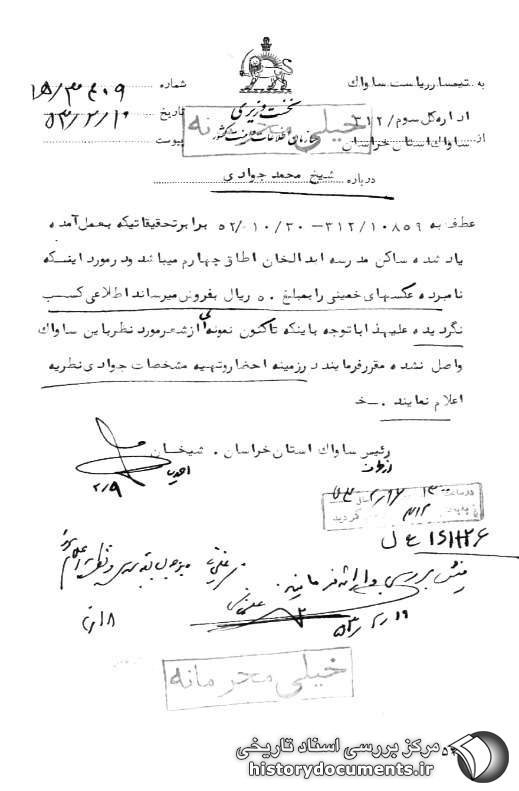 نخست وزیری
سازمان اطلاعات و امنیت کشور
خیلی محرمانه
به تیمسار ریاست ساواک
اداره کل سوم/ ۳۱۲
از ساواک استان خراسان
شماره ۱۵/۳۴۰۹
تاریخ ۵۳/۲/۱۰
پیوست
درباره شیخ محمد جوادی
عطف به ۳۱۲/۱۰۸۵۹ – ۵۲/۱۰/۳۰ برابر تحقیقاتیکه بعمل آمده
یاد شده ساکن مدرسه ابدالخان اطاق چهارم میباشد و در مورد اینکه
نامبرده عکسهای خمینی را بمبلغ ۵۰ ریال بفروش میرساند اطلاعی کسب
نگردیده علیهذا با توجه باینکه تاکنون نمونه ای از شعر مورد نظر باین ساواک
واصل نشده مقرر فرمایند در زمینه احضار و تهیه مشخصات جوادی نظریه
اعلام نمایند . خ
رئیس ساواک استان خراسان . شیخان
از طرف
۲/۹
بررسی و ارائه فرمایید
۵۳/۲/۱۹
خیلی محرمانه
مرکز بررسی اسناد تاریخی
historydocuments.ir